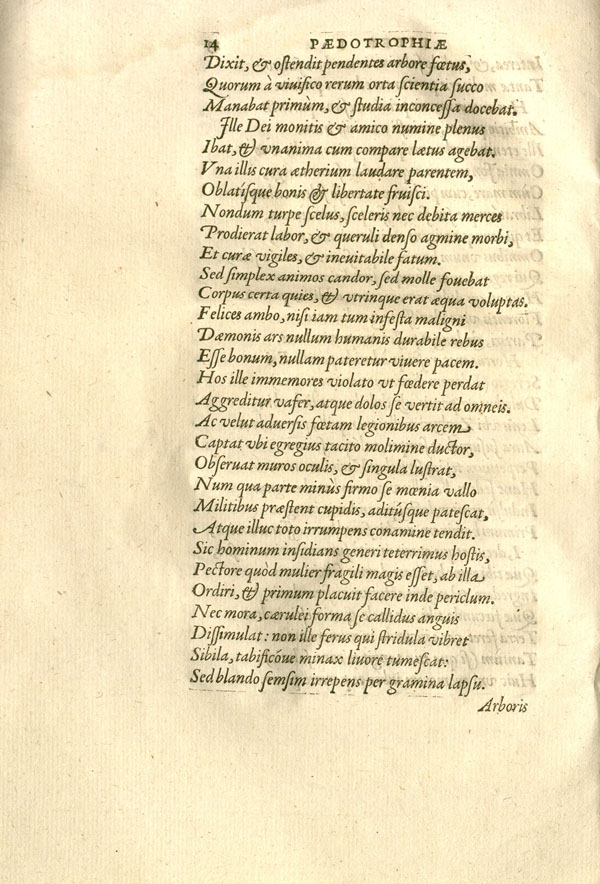 14 PÆDOTROPHIÆ
Dixit, & ostendit pendentes arbore fœtus,
Quorum à viuifico rerum orta scientia succo
Manabat primum, & studia inconcessa docebat.
Ille Dei monitis & amico numine plenus
Ibat, & vnanima cum compare lætus agebat.
Vna illis cura ætherium laudare parentem,
Oblatisque bonis & libertate fruisci.
Nondum turpe scelus, sceleris nec debita merces
Prodierat labor, & queruli denso agmine morbi,
Et curæ vigiles, & ineuitabile fatum.
Sed simplex animos candor, sed molle fouebat
Corpus certa quies, & vtrinque erat æqua voluptas.
Felices ambo, nisi iam tum infesta maligni
Dæmonis ars nullum humanis durabile rebus
Esse bonum, nullam pateretur viuere pacem.
Hos ille immemores violato vt fœdere perdat
Aggreditur vafer, atque dolos se vertit ad omneis.
Ac velut aduersis fœtam legionibus arcem
Captat vbi egregius tacito molimine ductor,
Obseruat muros oculis, & singula lustrat,
Num qua parte minùs firmo se mœnia vallo
Militibus præstent cupidis, aditúsque patescat,
Atque illuc toto irrumpens conamine tendit.
Sic hominum insidians generi teterrimus hostis,
Pectore quòd mulier fragili magis esset, ab illa
Ordiri, & primum placuit facere inde periclum.
Nec mora, cærulei forma se callidus anguis
Dissimulat: non ille ferus qui stridula vibret
Sibila, tabificóue minax liuore tumescat:
Sed blando sensim irrepens per gramina lapsu.
Arboris